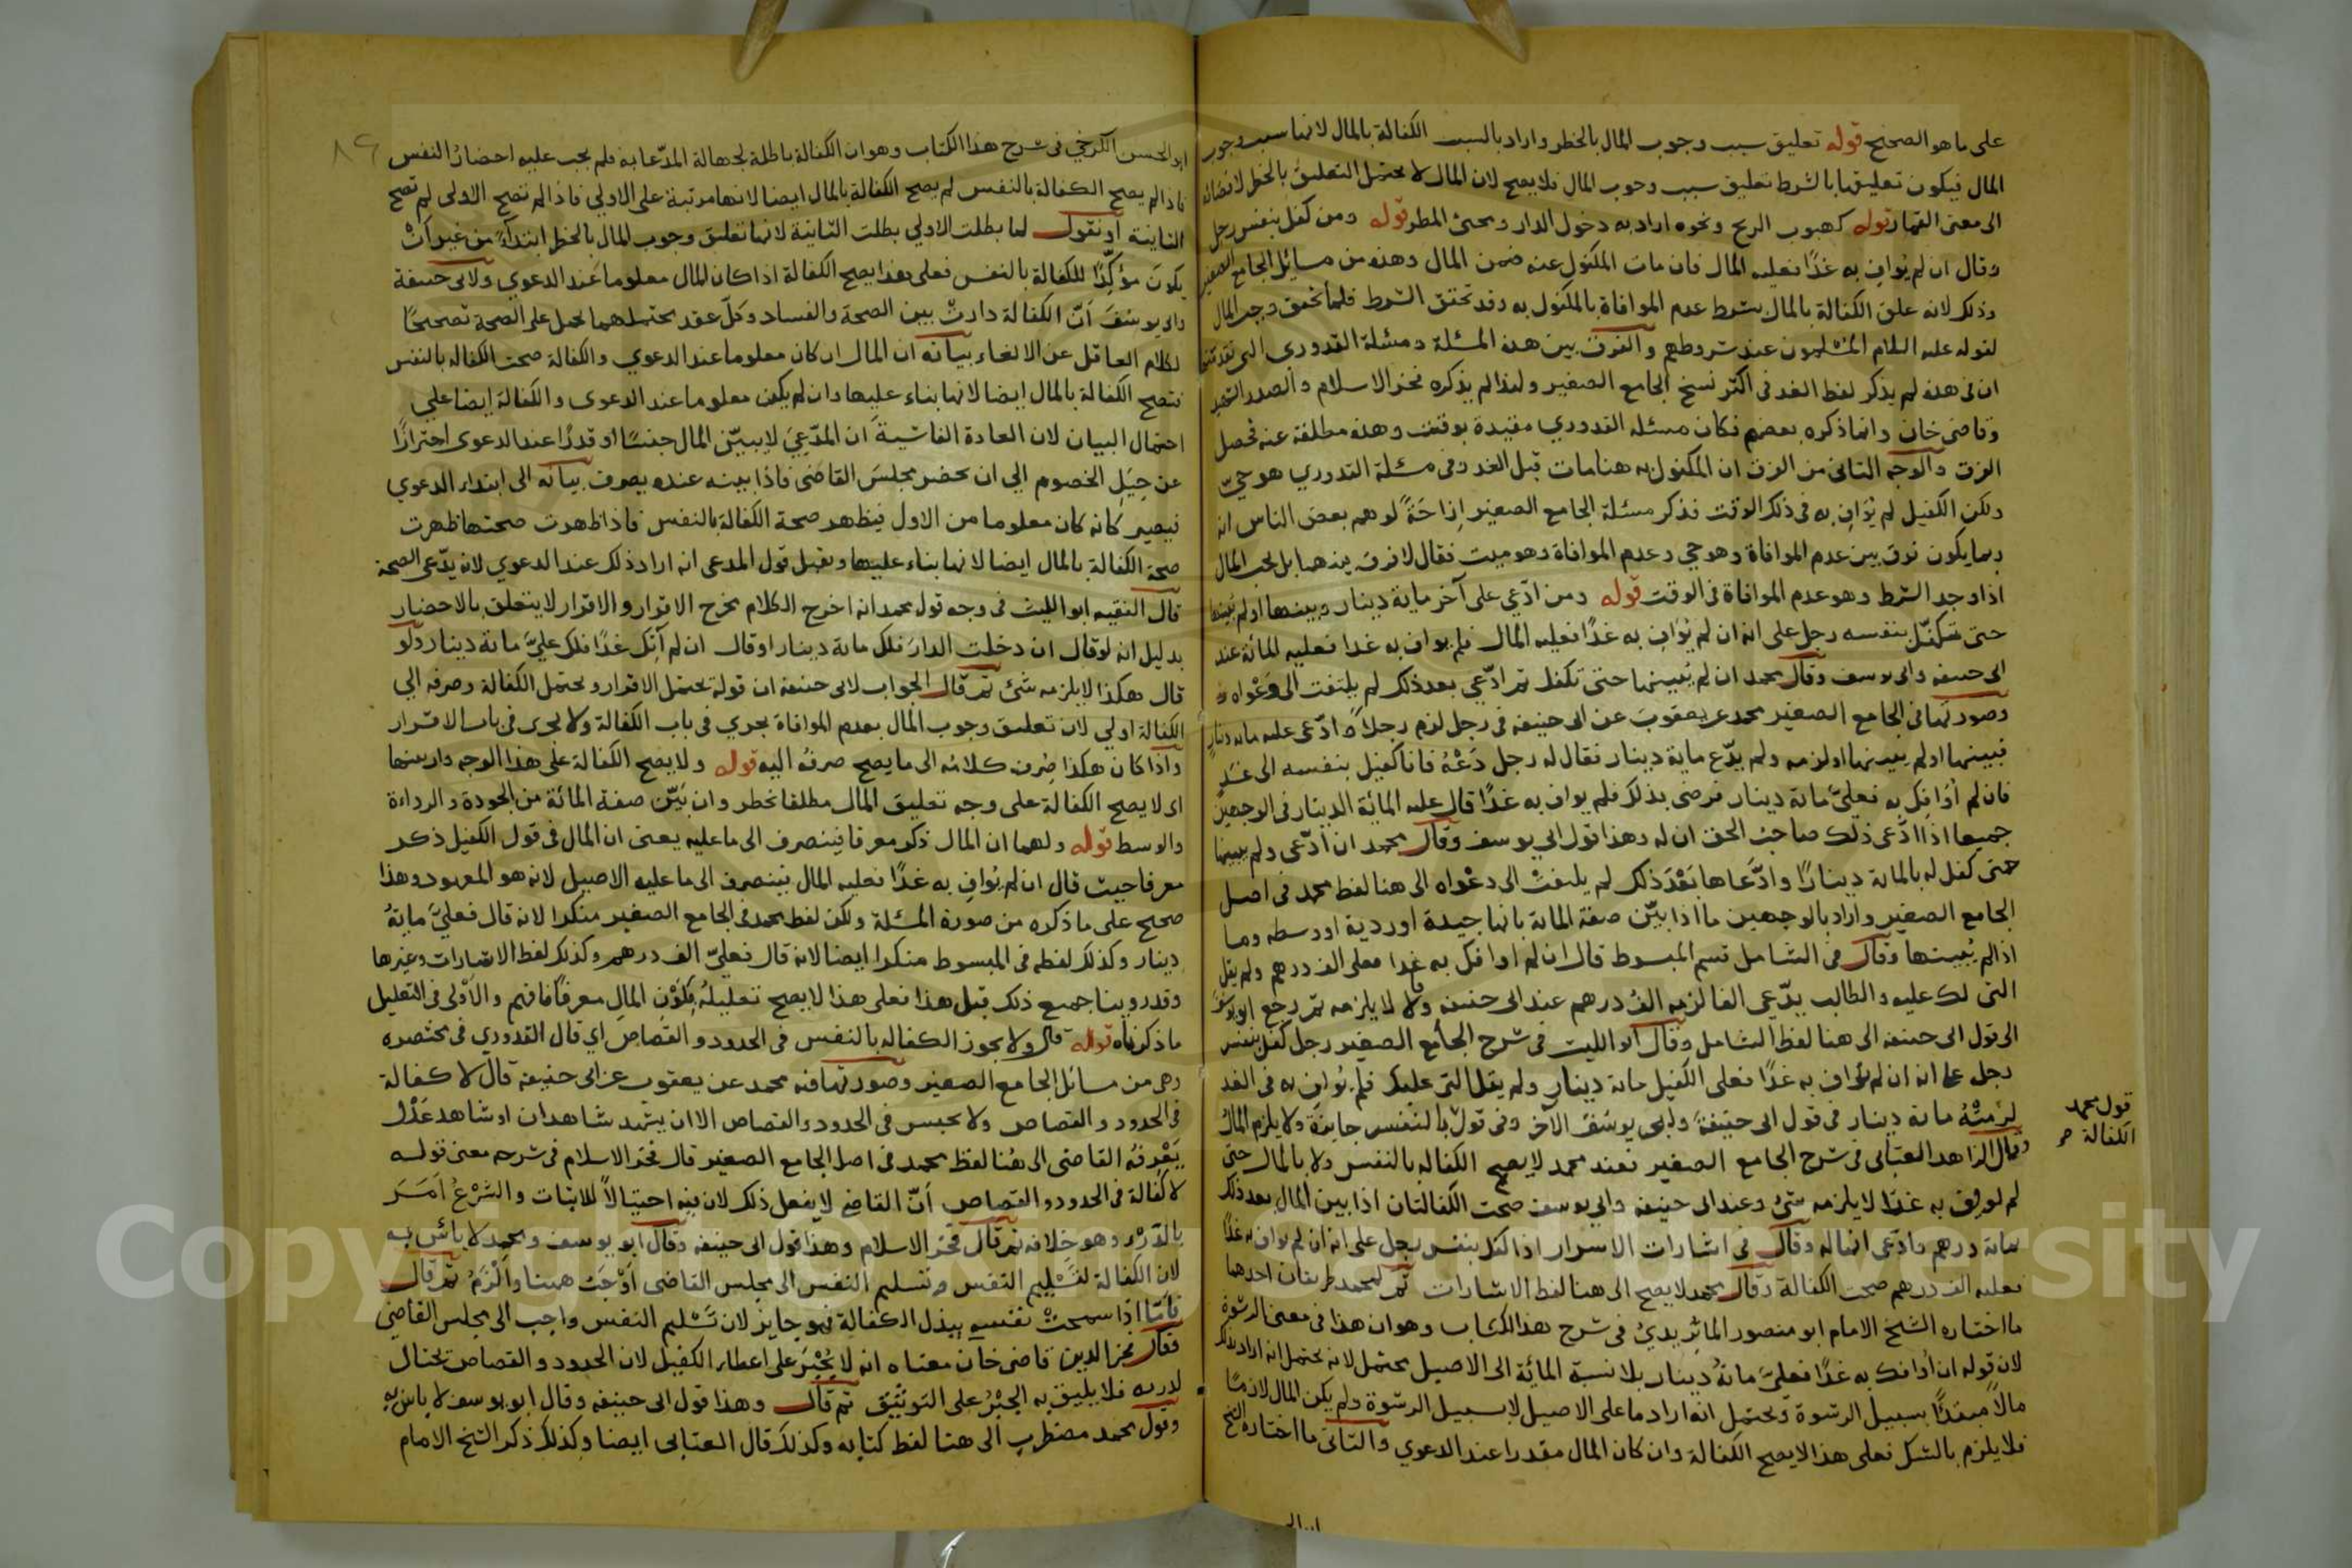 على ما هو الصحيح قوله تعليق سبب وجوب المال بالخطر واراد بالسبب الكفالة بالمال لانها سبب وجوب
المال فيكون تعليقها بالشرط تعليق سبب وجوب المال فلا يصح لان المال لا يحتمل التعليق بالخطر لافضائه
الى معنى القمار قوله كهبوب الريح ونحوه اراد به دخول الدار ومجئ المطر قوله ومن كفل بنفس رجل
وقال ان لم يُوافِ به غدًا فعليه المال فان مات المكفول عنه ضمن المال وهذه من مسائل الجامع الصغير
وذلك لانه علق الكفالة بالمال بشرط عدم الموافاة بالمكفول به وقد تحقق الشرط فلما تحقق وجب المال
لقوله عليه السلام المسلمون عند شروطهم والفرق بين هذه المسئلة ومسئلة القدوري التي تقدمتها
ان في هذه لم يذكر لفظ الغد في اكثر نسخ الجامع الصغير ولهذا لم يذكره فخر الاسلام والصدر الشهيد
وقاضى خان وانما ذكره بعضهم فكان مسئلة القدوري مقيدة بوقت وهذه مطلقة عنه فحصل
الفرق والوجه الثاني من الفرق ان المكفول به هنا مات قبل الغد وفى مسئلة القدوري هو حيّ
ولكن الكفيل لم يُوَافِ به في ذلك الوقت فذكر مسئلة الجامع الصغير اِزاحَةً لوهم بعض الناس انه
ربما يكون فرق بين عدم الموافاة وهو حي وعدم الموافاة وهو ميت فقال لا فرق بينهما بل يجب المال
اذا وجد الشرط وهو عدم الموافاة في الوقت قوله ومن ادّعي على آخر مائة دينار وبينها او لم يبينها
حتى تكفّل بنفسه رجل على انه ان لم يُوَافِ به غدًا فعليه المال فلم يواف به غدا فعليه المائة عند
ابى حنيفه وابى يوسف وقال محمد ان لم يُبينها حتى تكفل ثم ادّعي بعد ذلك لم يلتفت الى دَعْواه
وصورتها في الجامع الصغير محمد عن يعقوب عن ابى حنيفه في رجل لزم رجلا وادّعى عليه مائة دينار
فبينها او لم يبينها او لزمه ولم يدّع مائة دينار فقال له رجل دَعْهُ فانا كفيل بنفسه الى غَدٍ
فان لم أُوافِكَ به فعليَّ مائة دينار فرضى بذلك فلم يواف به غدًا قال عليه المائة الدينار في الوجهين
جميعا اذا ادّعى ذلك صاحبُ الحق ان له وهذا قول ابى يوسف وقال محمد ان ادّعى ولم يبينها
حتى كفل له بالمائة دينارًا وادَّعَاها بَعْدَ ذلك لم يلتفتْ الى دعْواه الى هنا لفظ محمد في اصل
الجامع الصغير واراد بالوجهين ما اذا بيّن صفة المائة بانها جيدة او ردية او وسطه وما
اذا لم يُبينها وقال في الشامل قسم المبسوط قال ان لم اوافك به غدا فعلى الف درهم ولم يقل
التى لك عليه والطالب يدّعى الفا لزمه الفُ درهم عند ابى حنيفه وقالا لا يلزمه ثم رجع ابو يوسف
الى قول ابى حنيفه الى هنا لفظ الشامل وقال ابو الليث في شرح الجامع الصغير رجل كفل بنفس
رجل على انه ان لم يُوافِ به غدًا فعلى الكفيل مائة دينار ولم يقل التى عليك فلم يُوافِ به في الغد
لزمتْهُ مائة دينار في قول ابى حنيفةَ وابى يوسُفَ الآخر وفى قول بالنفس جايزة ولا يلزم المالُ
قول محمد
الكفالة صح
وقال الزاهد العتابي في شرح الجامع الصغير فعند محمد لا يصح الكفالة بالنفس ولا بالمال حتى
لم يوف به غدًا لا يلزمه شئ وعند ابى حنيفه وابى يوسف صحت الكفالتان اذا بين المال بعد ذلك
بمائة درهم وادّعى انها له وقال في اشارات الاسرار اذا كفل بنفس رجل على انه ان لم يواف به غدًا
فعليه الف درهم صحت الكفالة وقال محمد لا يصح الى هنا لفظ الاشارات ثم لمحمد طريقان احدهما
ما اختاره الشيخ الامام ابو منصور الماتريدي في شرح هذا الكتاب وهو ان هذا في معنى الرشوة
لان قوله ان أُوافك به غدًا فعليّ مائةُ دينار بلا نسبة المائة الى الاصيل يحتمل لانه يحتمل انه اراد بذلك
مالاً مبتدأً بسبيل الرشوة ويحتمل انه اراد ما على الاصيل لا بسبيل الرشوة ولم يكن المال لازمًا
فلا يلزم بالشك فعلى هذا لا يصح الكفالة وان كان المال مقدرا عند الدعوي والثاني ما اختاره الشيخ
ابو الحسن
٨٩
ابو الحسن الكرخي في شرح هذا الكتاب وهو ان الكفالة باطلة لجهالة المدّعا به فلم يجب عليه احضارُ النفس
فاذا لم يصح الكفالة بالنفس لم يصح الكفالة بالمال ايضا لانها مرتبة على الاولي فاذا لم تصح الاولى لم تصح
الثانية او نقول لما بطلت الاولي بطلت الثانية لانها تعليق وجوب المال بالخطر ابتداءً من غير أنْ
يكونَ مؤكِّدًا للكفالة بالنفس فعلى هذا يصح الكفالة اذا كان المال معلوما عند الدعوي ولابى حنيفة
وابى يوسُفَ اَنّ الكفالة دارتْ بين الصحة والفساد وكلّ عقد يحتملهما يحمل على الصحة تصحيحًا
لكلام العاقل عن الالغاء بيانه ان المال ان كان معلوما عند الدعوي والكفالة صحت الكفالة بالنفس
فتصح الكفالة بالمال ايضا لانها بناء عليها وان لم يكن معلوما عند الدعوى والكفالة ايضا علي
احتمال البيان لان العادة الفاشية اَن المدّعِيَ لا يبيّن المال جنسًا او قدرًا عند الدعوى احترازًا
عن حِيَلِ الخصوم الي ان يحضر مجلسَ القاضى فاذا بينه عنده يصرف بيانه الى ابتداء الدعوي
فيصير كأنه كان معلوما من الاول فيظهر صحة الكفالة بالنفس فاذا ظهرت صحتها ظهرت
صحة الكفالة بالمال ايضا لانها بناء عليها ويقبل قول المدعى انه اراد ذلك عند الدعوي لانه يدّعى الصحة
قال الفقيه ابو الليث في وجه قول محمد انه اخرج الكلام مخرج الاقرار والاقرار لا يتعلق بالاحضار
بدليل انه لو قال ان دخلت الدارَ فلك مائة دينار او قال ان لم آتِك غدًا فلك عليَّ مائة دينار ولو
قال هكذا لا يلزمه شئ ثم قال الجواب لابى حنيفه ان قوله يحتمل الاقرار ويحتمل الكفالة وصرفه الي
الكفالة اولي لان تعليق وجوب المال بعدم الموافاة يجري في باب الكفالة ولا يجرى في باب الاقرار
واذا كان هكذا صُرف كلامُه الى ما يصح صرفُه اليه قوله ولا يصح الكفالة على هذا الوجه وان بينها
اى لا يصح الكفالة على وجه تعليق المال مطلقا بخطر وان بَيّن صفة المائة من الجودة والرداءة
والوسط قوله ولهما ان المال ذكر معرفا فينصرف الى ما عليه يعنى ان المال في قول الكفيل ذكر
معرفا حيث قال ان لم يُوافِ به غدًا فعليه المال فينصرف الى ما عليه الاصيل لانه هو المعهود وهذا
صحيح على ما ذكره من صورة المسئلة ولكن لفظ محمد في الجامع الصغير منكرا لانه قال فعليَّ مائةُ
دينار وكذلك لفظه في المبسوط منكرا ايضا لانه قال فعليّ الف درهم وكذلك لفظ الاشارات وغيرها
وقد روينا جميع ذلك قبل هذا فعلى هذا لا يصح تعليلهُ بكَوْنِ المالِ معرفًا فافهم والاَوْلى في التعليل
ما ذكرناه قوله قال ولا يجوز الكفاله بالنفس في الحدود والقصاص اي قال القدوري في مختصره
وهى من مسائل الجامع الصغير وصورتها فيه محمد عن يعقوب عن ابى حنيفة قال لا كفالة
في الحدود والقصاص ولا يحبس في الحدود والقصاص الا ان يشهد شاهدان او شاهد عَدْل
يَعْرفُه القاضى الى هُنا لفظ محمد في اصل الجامع الصغير قال فخر الاسلام في شرحه معنى قوله
لا كفالة في الحدود والقصاص اَنّ القاضي لا يفعل ذلك لان فيه احتيالاً للاثبات والشرْعُ اَمَرَ
بالدّرْء وهو خلافه ثم قال فخر الاسلام وهذا قول ابى حنيفه وقال ابو يوسف ومحمد لا بأسَ به
لان الكفالة لتسْليم النفس وتسليم النفس الى مجلس القاضي اَوْجَبُ هنا واَلْزَمُ ثم قال
فأمّا اذا سمحتْ نفسه ببذل الكفالة فهو جايز لان تسْليم النفس واجب الى مجلس القاضي
فقال فخر الدين قاضى خان معناه انه لا يُجْبَرُ على اعطاء الكفيل لان الحدود والقصاص يحتال
لدرءه فلا يليق به الجَبْرُ على التوثيق ثم قال وهذا قول ابى حنيفه وقال ابو يوسف لا باس به
وقول محمد مضطرب الى هنا لفظ كتابه وكذلك قال العتابى ايضا وكذلك ذكر الشيخ الامام
Copyright © King Saud University